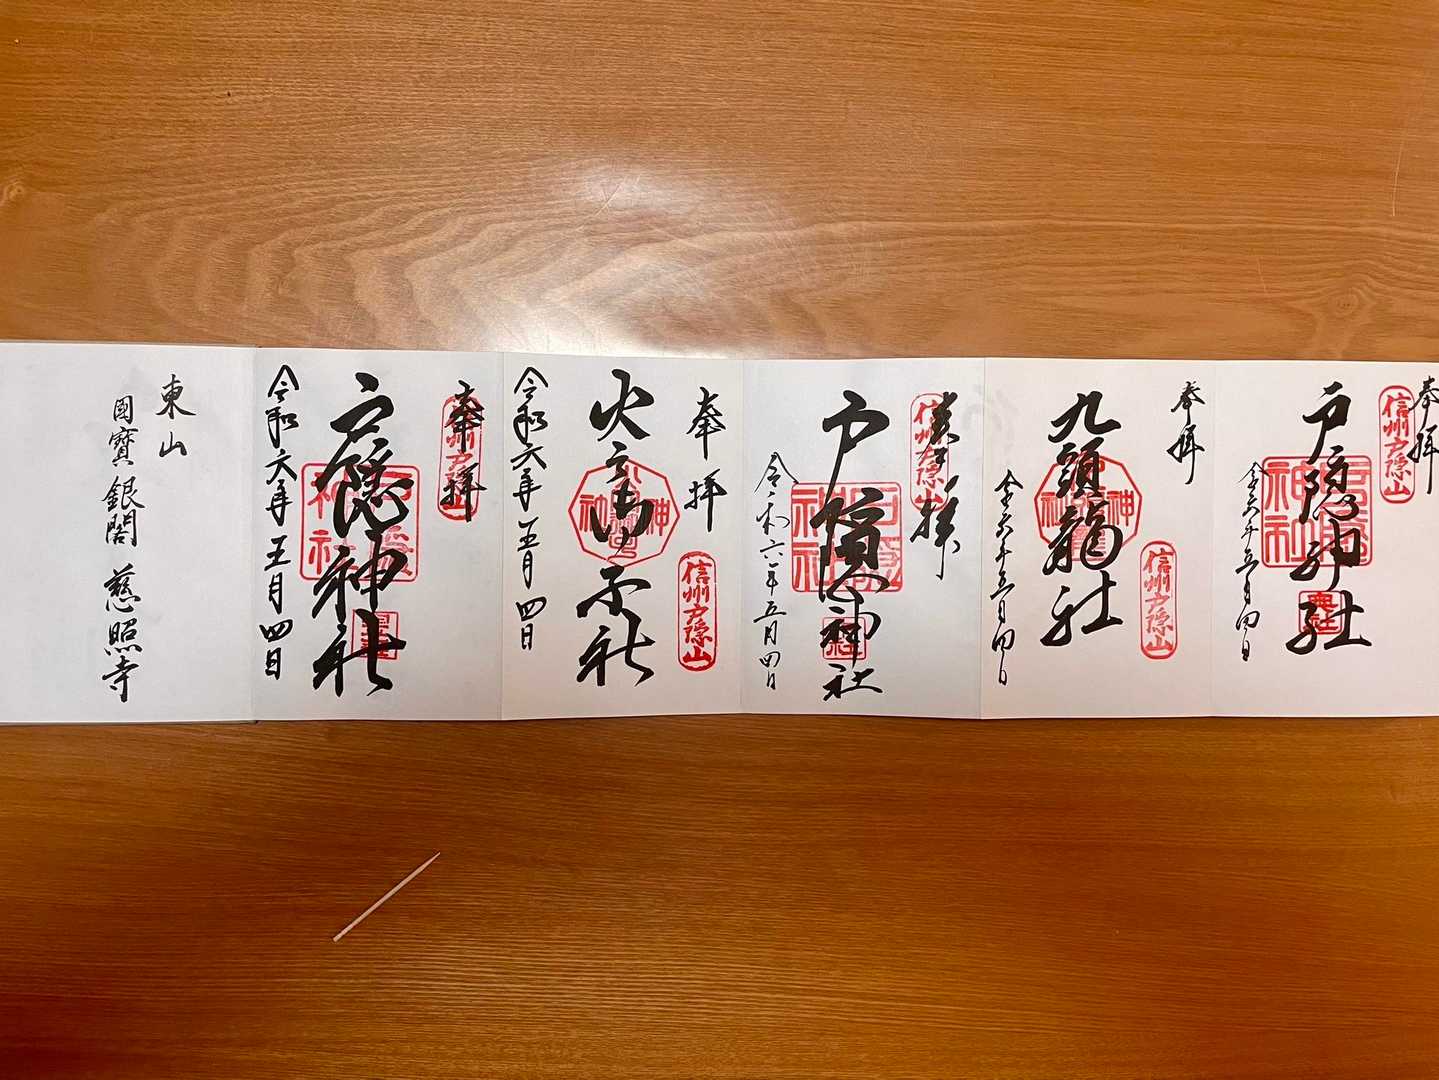 奉拝
信州戸隠山
戸隠神社
奥社
令和六年五月四日
奉拝
信州戸隠山
九頭龍社
令和六年五月四日
奉拝
信州戸隠山
戸隠神社
令和六年五月四日
奉拝
信州戸隠山
火之御子社
令和六年五月四日
奉拝
信州戸隠山
戸隠神社
令和六年五月四日
東山
國寶銀閣 慈照寺